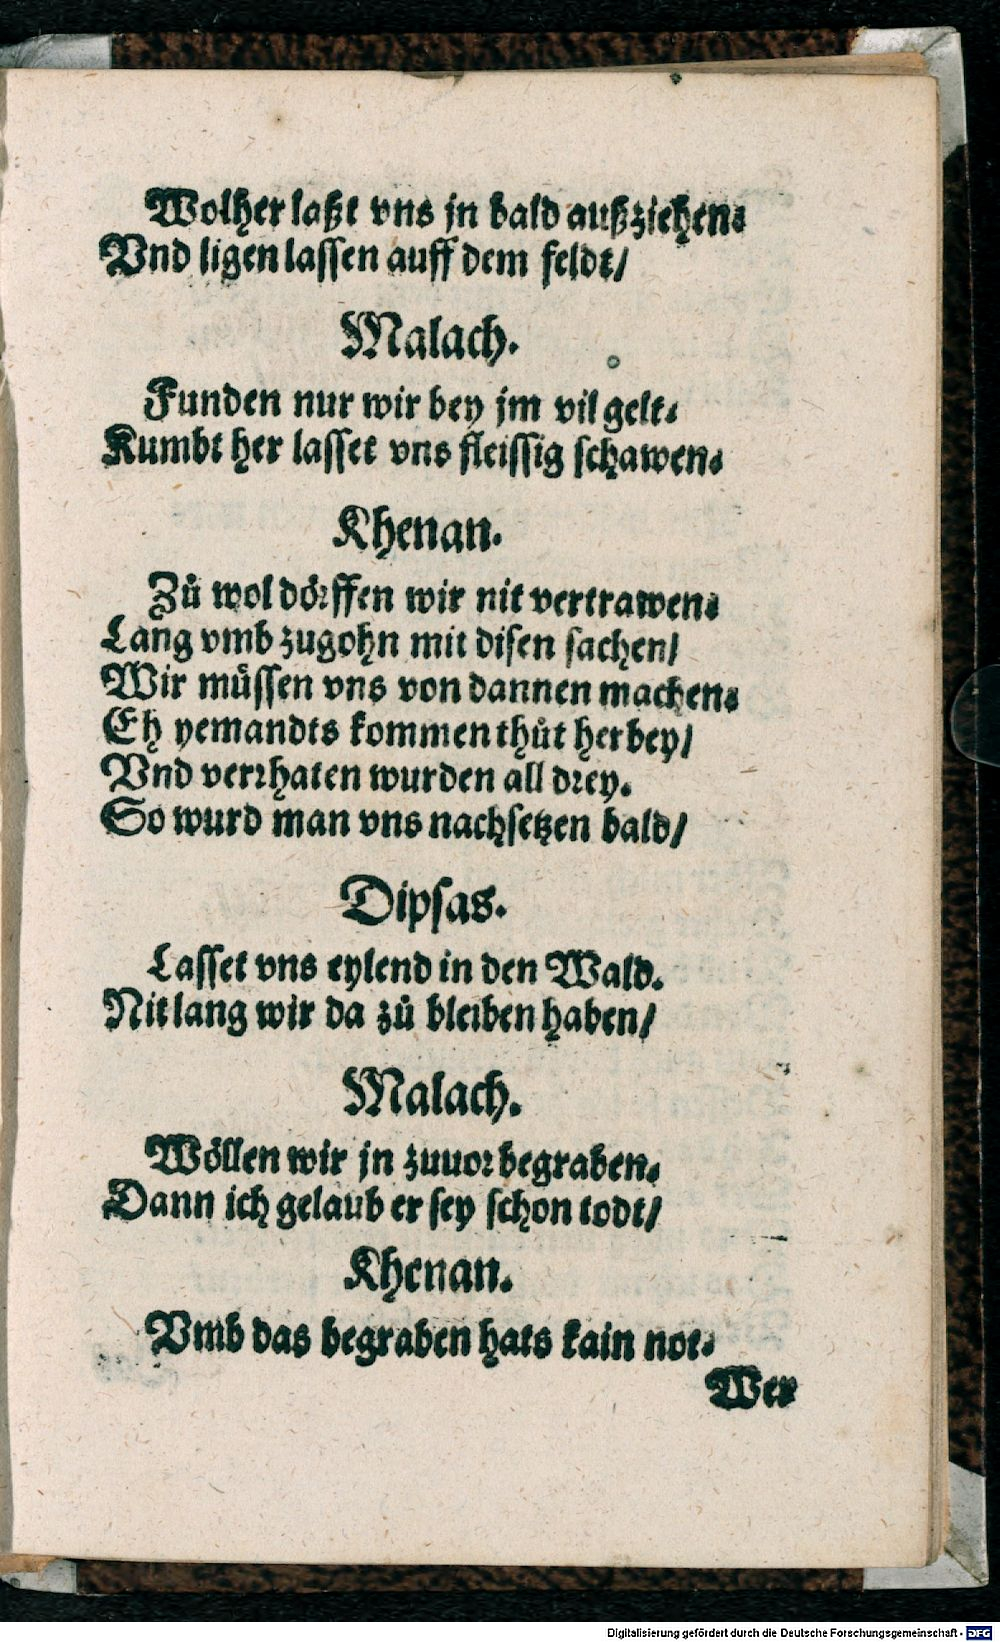 Wolher laßt vns jn bald außziehen.
Vnd ligen lassen auff dem feldt/
Malach.
Funden nur wir bey jm vil gelt.
Kumbt her lasset vns fleissig schawen.
Khenan.
Zů wol dörffen wir nit vertrawen.
Lang vmb zugohn mit disen sachen/
Wir müssen vns von dannen machen.
Eh yemandts kommen thůt herbey/
Vnd verrhaten wurden all drey.
So wurd man vns nachsetzen bald/
Dipsas.
Lasset vns eylend in den Wald.
Nit lang wir da zů bleiben haben/
Malach.
Wöllen wir jn zuuor begraben.
Dann ich gelaub er sey schon todt/
Khenan.
Vmb das begraben hats kain not.
Wer
Digitalisierung gefördert durch die Deutsche Forschungsgemeinschaft - DFG